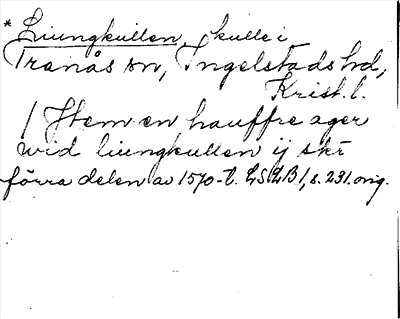 * Liungkullen, kulle i
Tranås sn, Ingelstads hd,
Krist. l.
/ Item en hauffre ager
wid liungkullen ij skr
förra delen av 1570-t. LSLB 1, s. 231. orig.